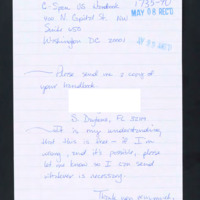 C-Span
1735-90
MAY 08 REC'D
400 N. Capitol St. NW
Suite 650
Washington DC 20001
Please send me a copy of
your handbook.
S. Daytona, FL
It is my understanding
that this is free - if I'm
wrong, and it's possible, please
let me know so I can send
whatever is necessary.
Thank you very much,